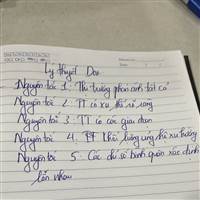 Lý thuyết Dow
Nguyên tắc 1: Thị trường phản ánh tất cả
Nguyên tắc 2: TT có xu thế rõ ràng
Nguyên tắc 3: TT có các giai đoạn
Nguyên tắc 4: KL tương ứng thì xu hướng
Nguyên tắc 5: Các chỉ số bình quân xác định
lẫn nhau